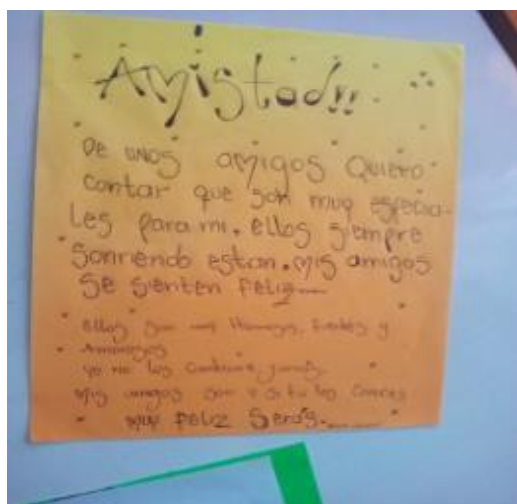 Amistad!!
De unos amigos quiero
contar que son muy especia-
les para mi. ellos siempre
sonriendo estan. mis amigos
se sienten feliz
ellos son
yo no los
mis amigos son y si tu los conoces
muy feliz serás.